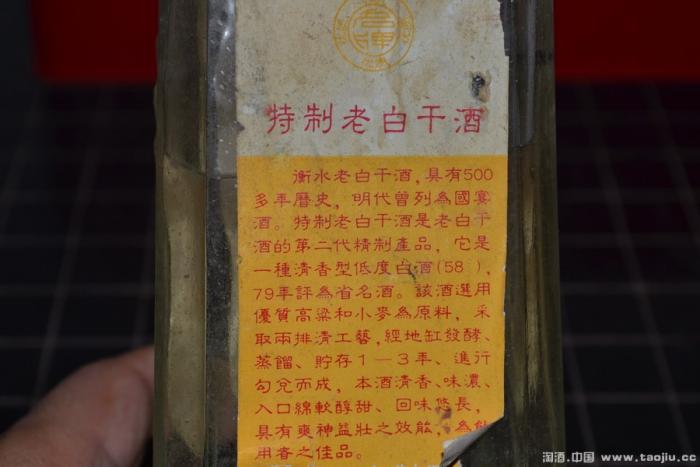 特制老白干酒
衡水老白干酒，具有500
多年曆史，明代曾列為國宴
酒。特制老白干酒是老白干
酒的第二代精制產品，它是
一種清香型低度白酒(58 )，
79年評為省名酒。該酒選用
優質高粱和小麥為原料，采
取兩排清工藝，經地缸發酵、
蒸餾、貯存1—3年、進行
勾兌而成，本酒清香、味濃、
入口綿軟醇甜、回味悠長，
具有爽神益壯之效能，為飲
用者之佳品。
淘酒.中国 www.taojiu.cc